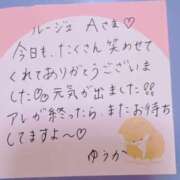 ルージュ Aさま♡
今日も、たくさん笑わせて
くれてありがとうございま
した😊元気が出ました!!
アレが終ったら、またお待ち
してますよ〜♡
ゆうか